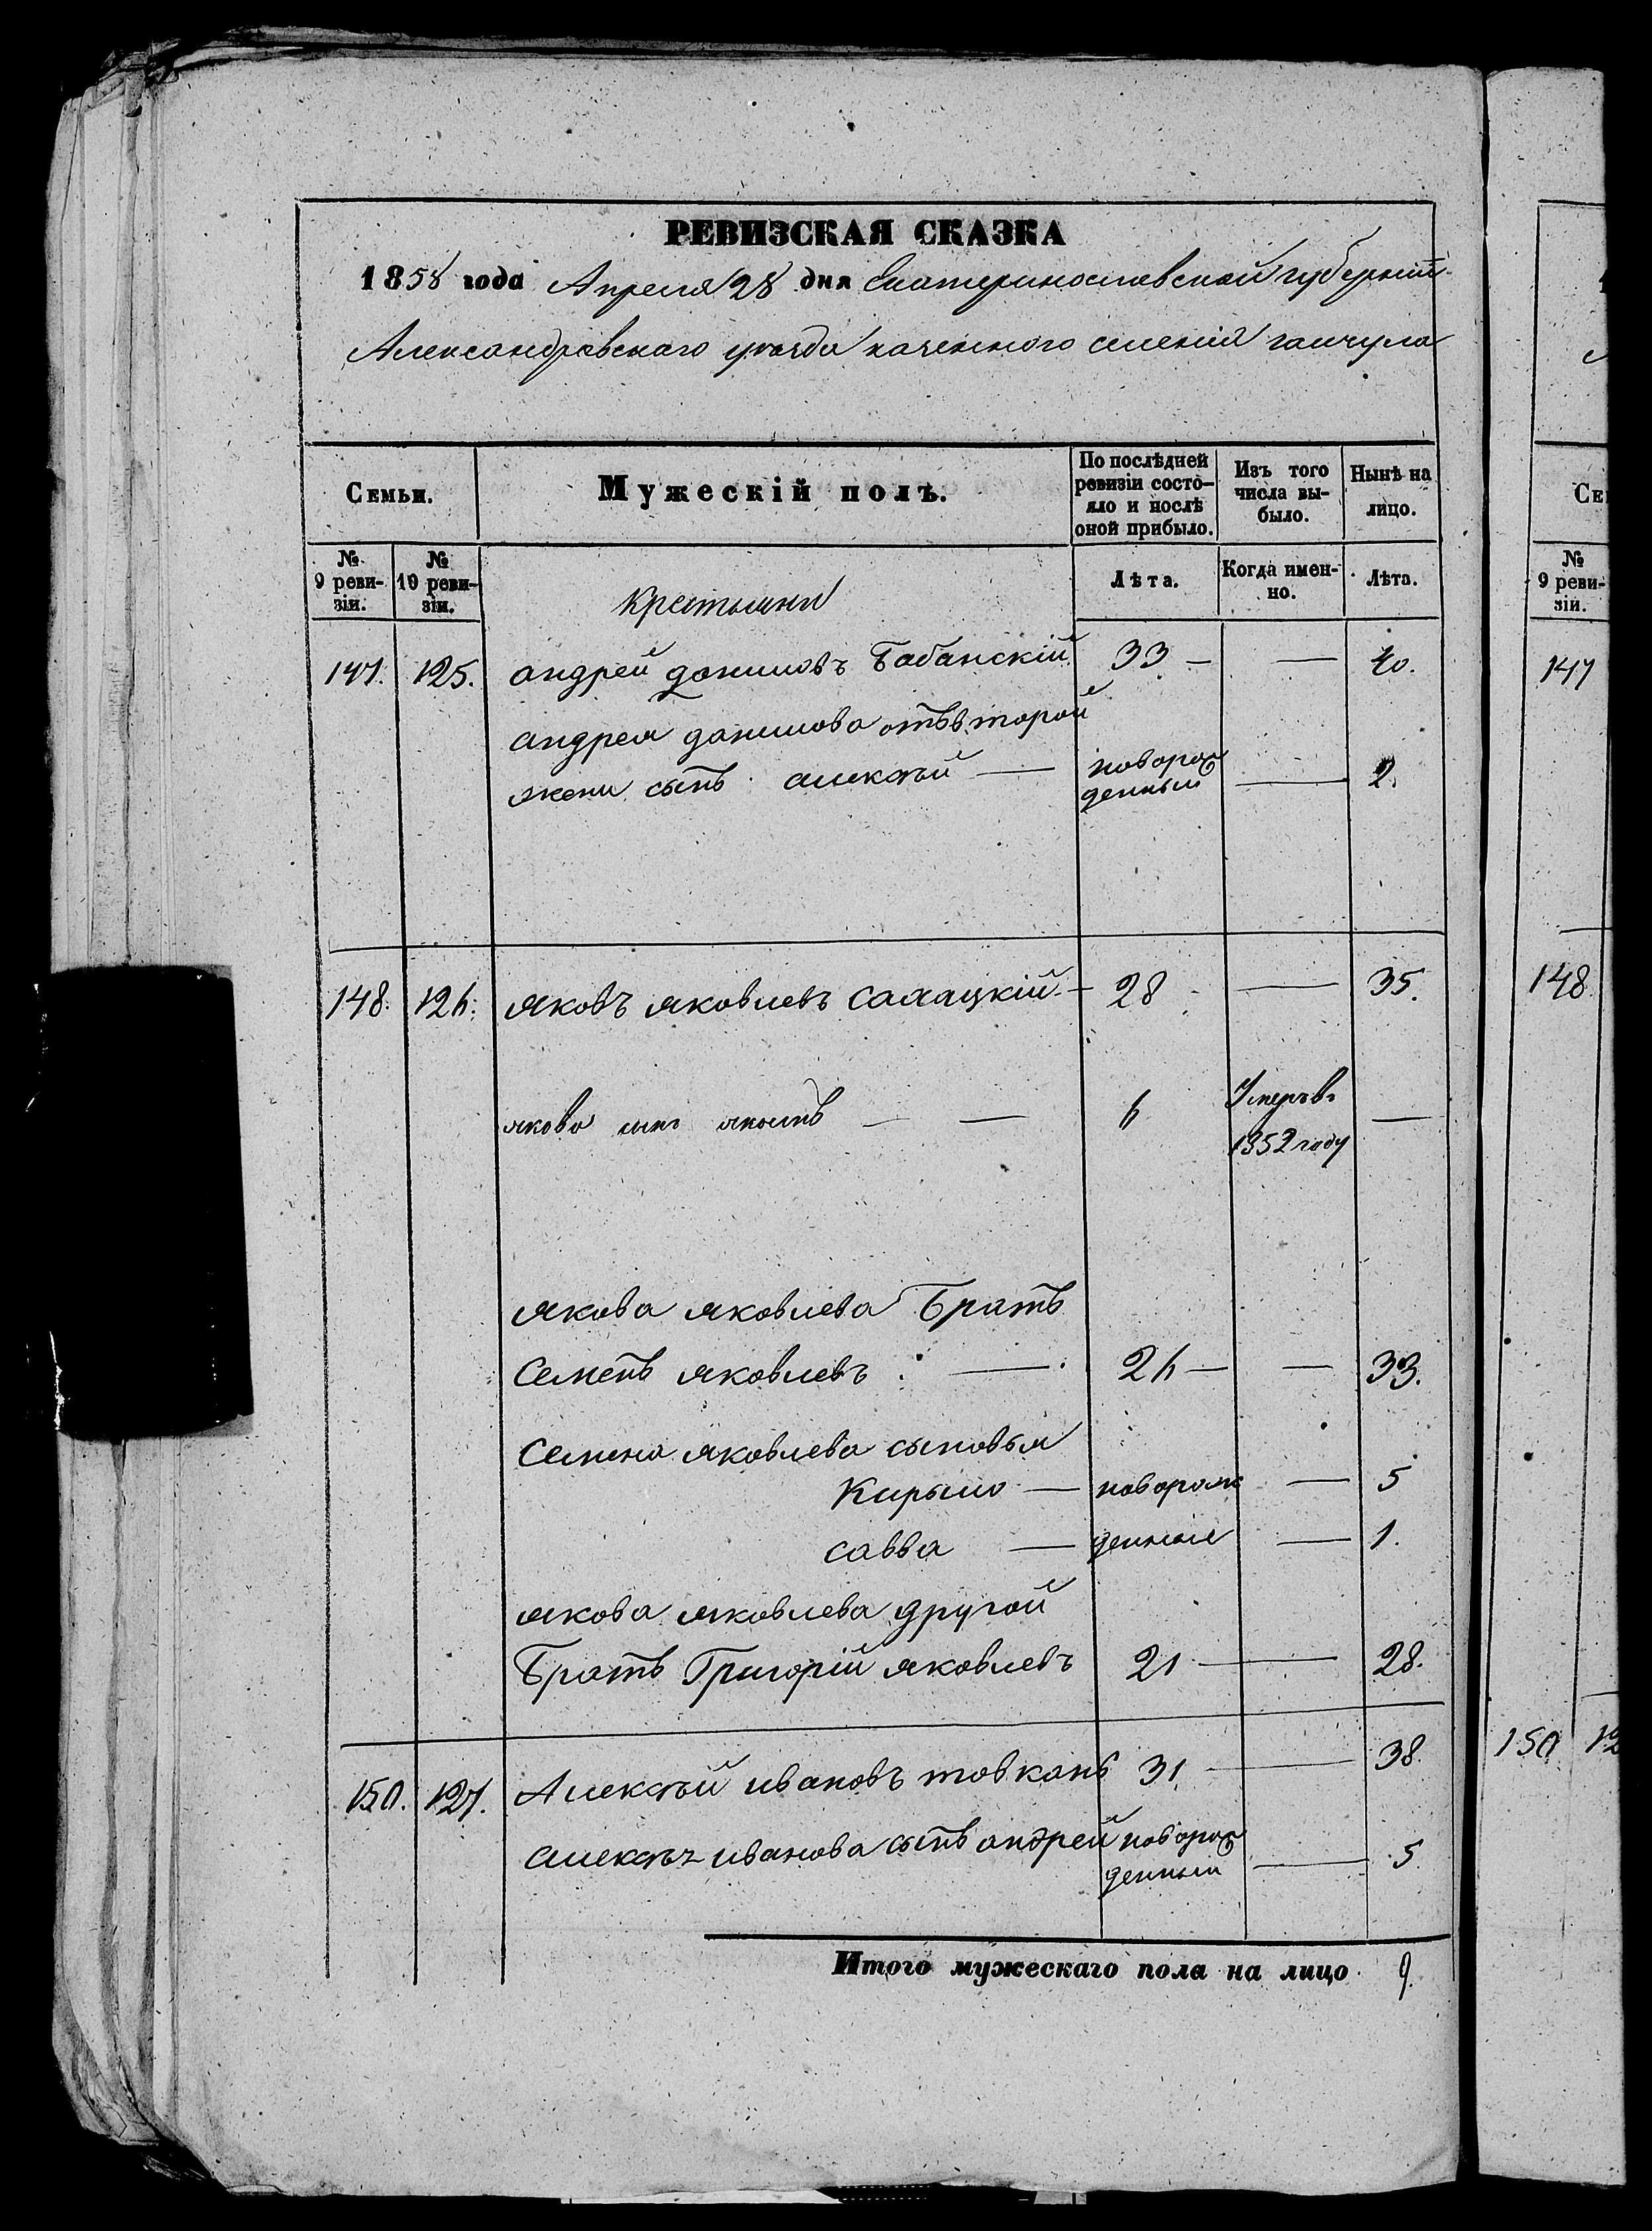 РЕВИЗСКАЯ СКАЗКА
1858 года Апреля 28 дня Екатеринославской губернии
Александровскаго уезда казенного селения гайчула
Семьи.
Мужескій полъ.
По послѣдней ревизіи состояло и послѣ оной прибыло.
Изъ того числа выбыло.
Нынѣ на лицо.
№ 9 ревизіи.
№ 10 ревизіи.
Крестьяни
Лѣта.
Когда именно.
Лѣта.
147. 125. андрей даниловъ Бабанскій 33 — — 40.
андрея данилова отъ второй
жени сынъ алексѣй — новорожденный — 2.
148. 126. яковъ яковлевъ салацкій — 28 — 35.
якова сынъ — — 6 Умеръ въ 1852 году —
якова яковлева Братъ
Семенъ яковлевъ — 26 — — 33.
Семена яковлева сыновья
Кирыло — новорож — 5
савва — денные — 1.
якова яковлева другой
Братъ Григорій яковлевъ 21 — 28.
150. 127. Алексѣй ивановъ товкань 31 — 38
алексѣя иванова сынъ андрей новорожденный — 5.
Итого мужескаго пола на лицо 9.
Се
№ 9 ревизіи.
147
148
150 12